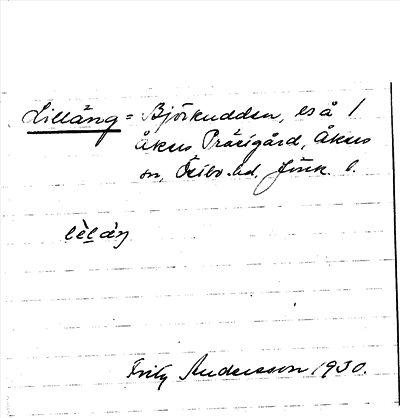 Lillång = Björkudden, es å 1
Åkers Prästgård, Åkers
sn, Östbo hd, Jönk. l.
lèl áŋ
Fritz Andersson 1930.